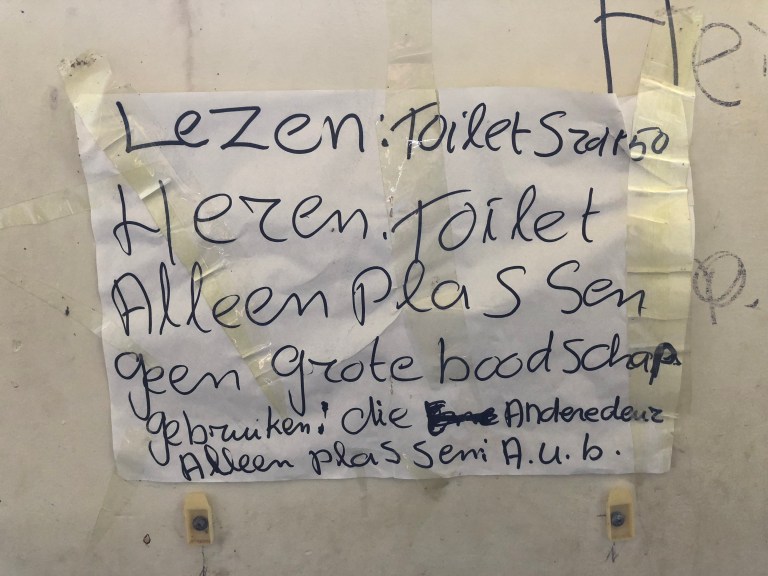 Hei
Lezen: Toilet
Heren. Toilet
Alleen plassen
geen grote boodschap
gebruiken! die Anderedeur
Alleen plassen! A.u.b.
p.